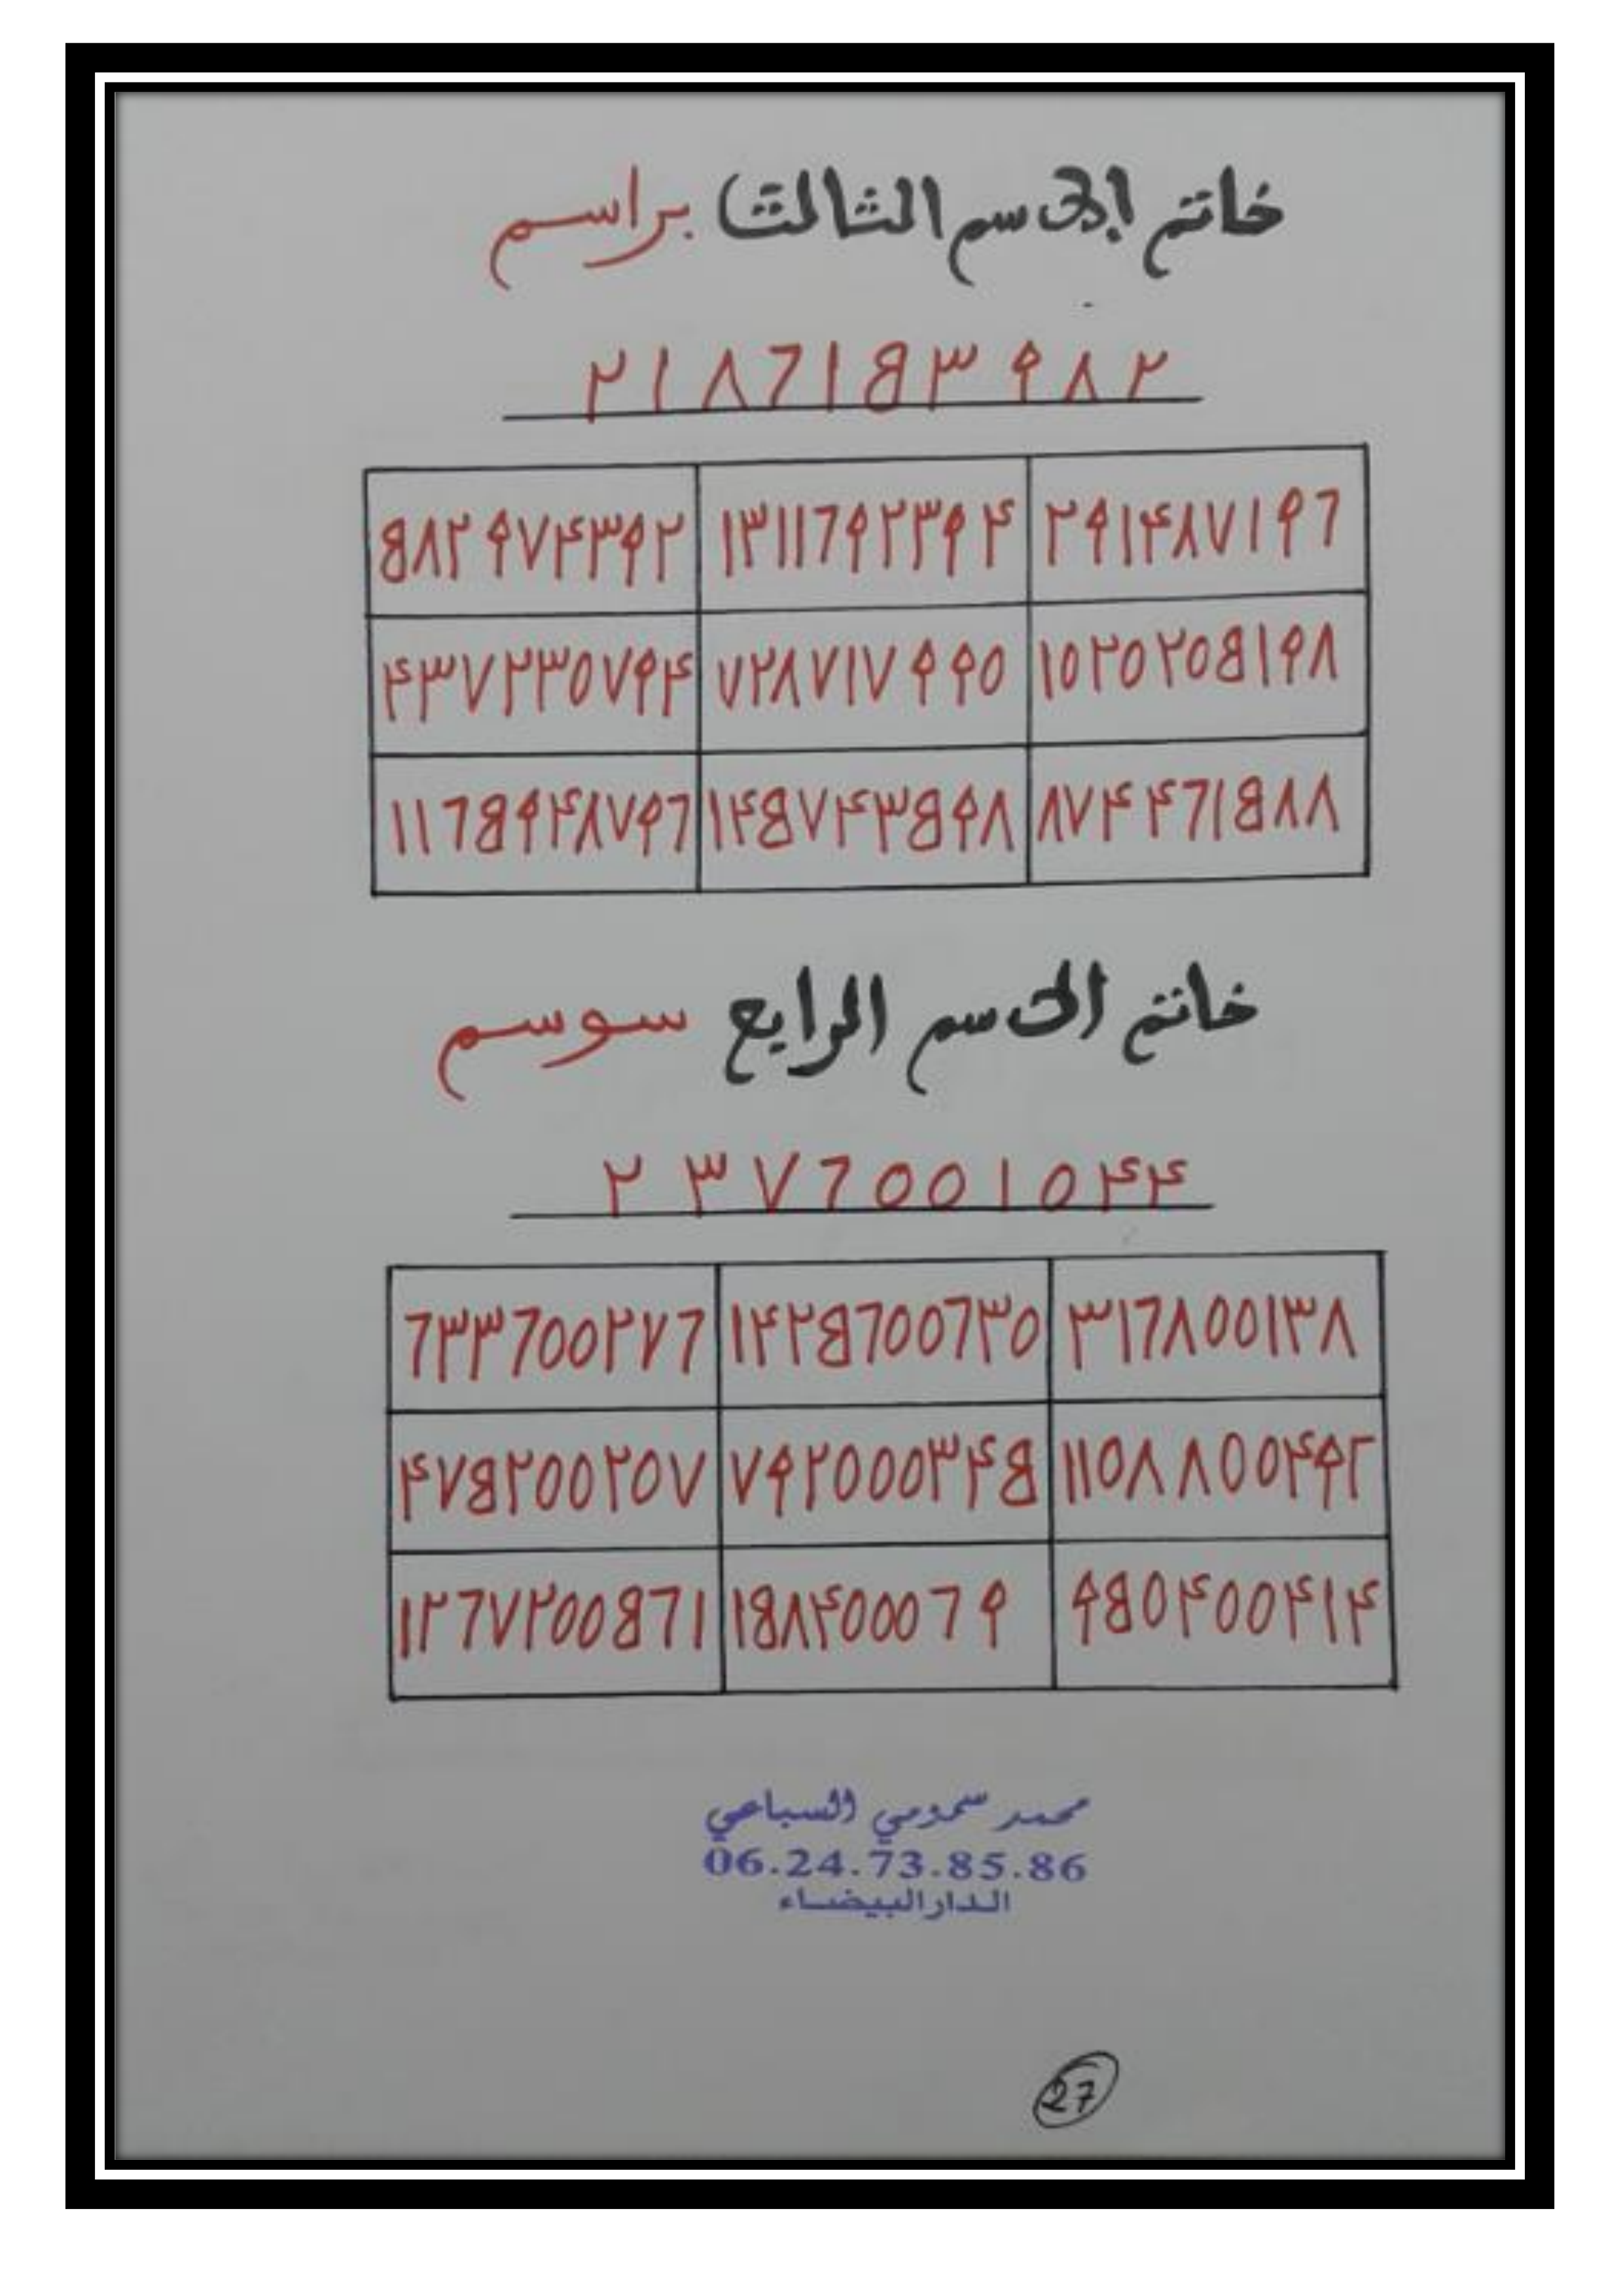 خاتم الإسم الثالث براسم
٢١٨٦١٥٣٩٨٢
٥٨٢٩٧٤٣٩٢ ١٣١١٦٩٢٣٩٤ ٢٩١٤٨٧١٩٦
٤٣٧٢٣٠٧٩٤ ٧٢٨٧١٧٩٩٠ ١٠٢٠٢٠٥١٩٨
١١٦٥٩٤٨٧٩٦ ١٤٥٧٤٣٥٩٨ ٨٧٤٤٦١٥٨٨
خاتم الاسم الرابع سوسم
٢٣٧٦٠٠١٠٤٤
٦٣٣٦٠٠٢٧٦ ١٤٢٥٦٠٠٦٣٠ ٣١٦٨٠٠١٣٨
٤٧٥٢٠٠٢٠٧ ٧٩٢٠٠٠٣٤٥ ١١٠٨٨٠٠٤٩٢
١٢٦٧٢٠٠٥٦١ ١٥٨٤٠٠٠٦٩ ٩٥٠٤٠٠٤١٤
محمد سمومي السباعي
06.24.73.85.86
الدار البيضاء
27